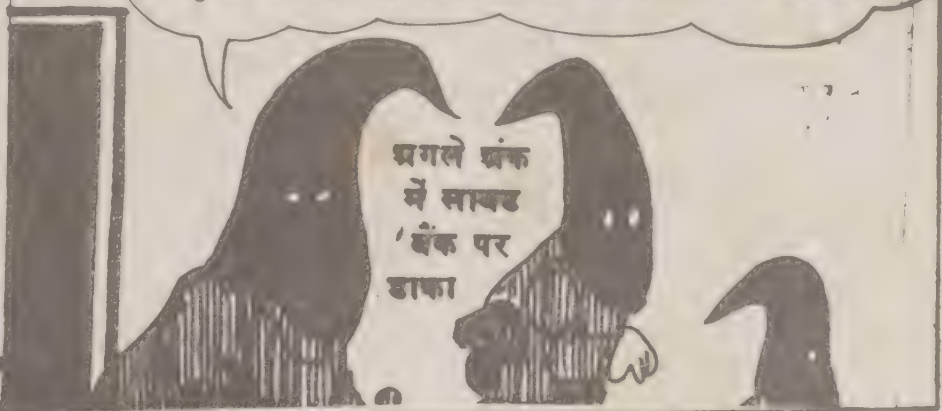 अगले अंक
में लायड
बैंक पर
डाका